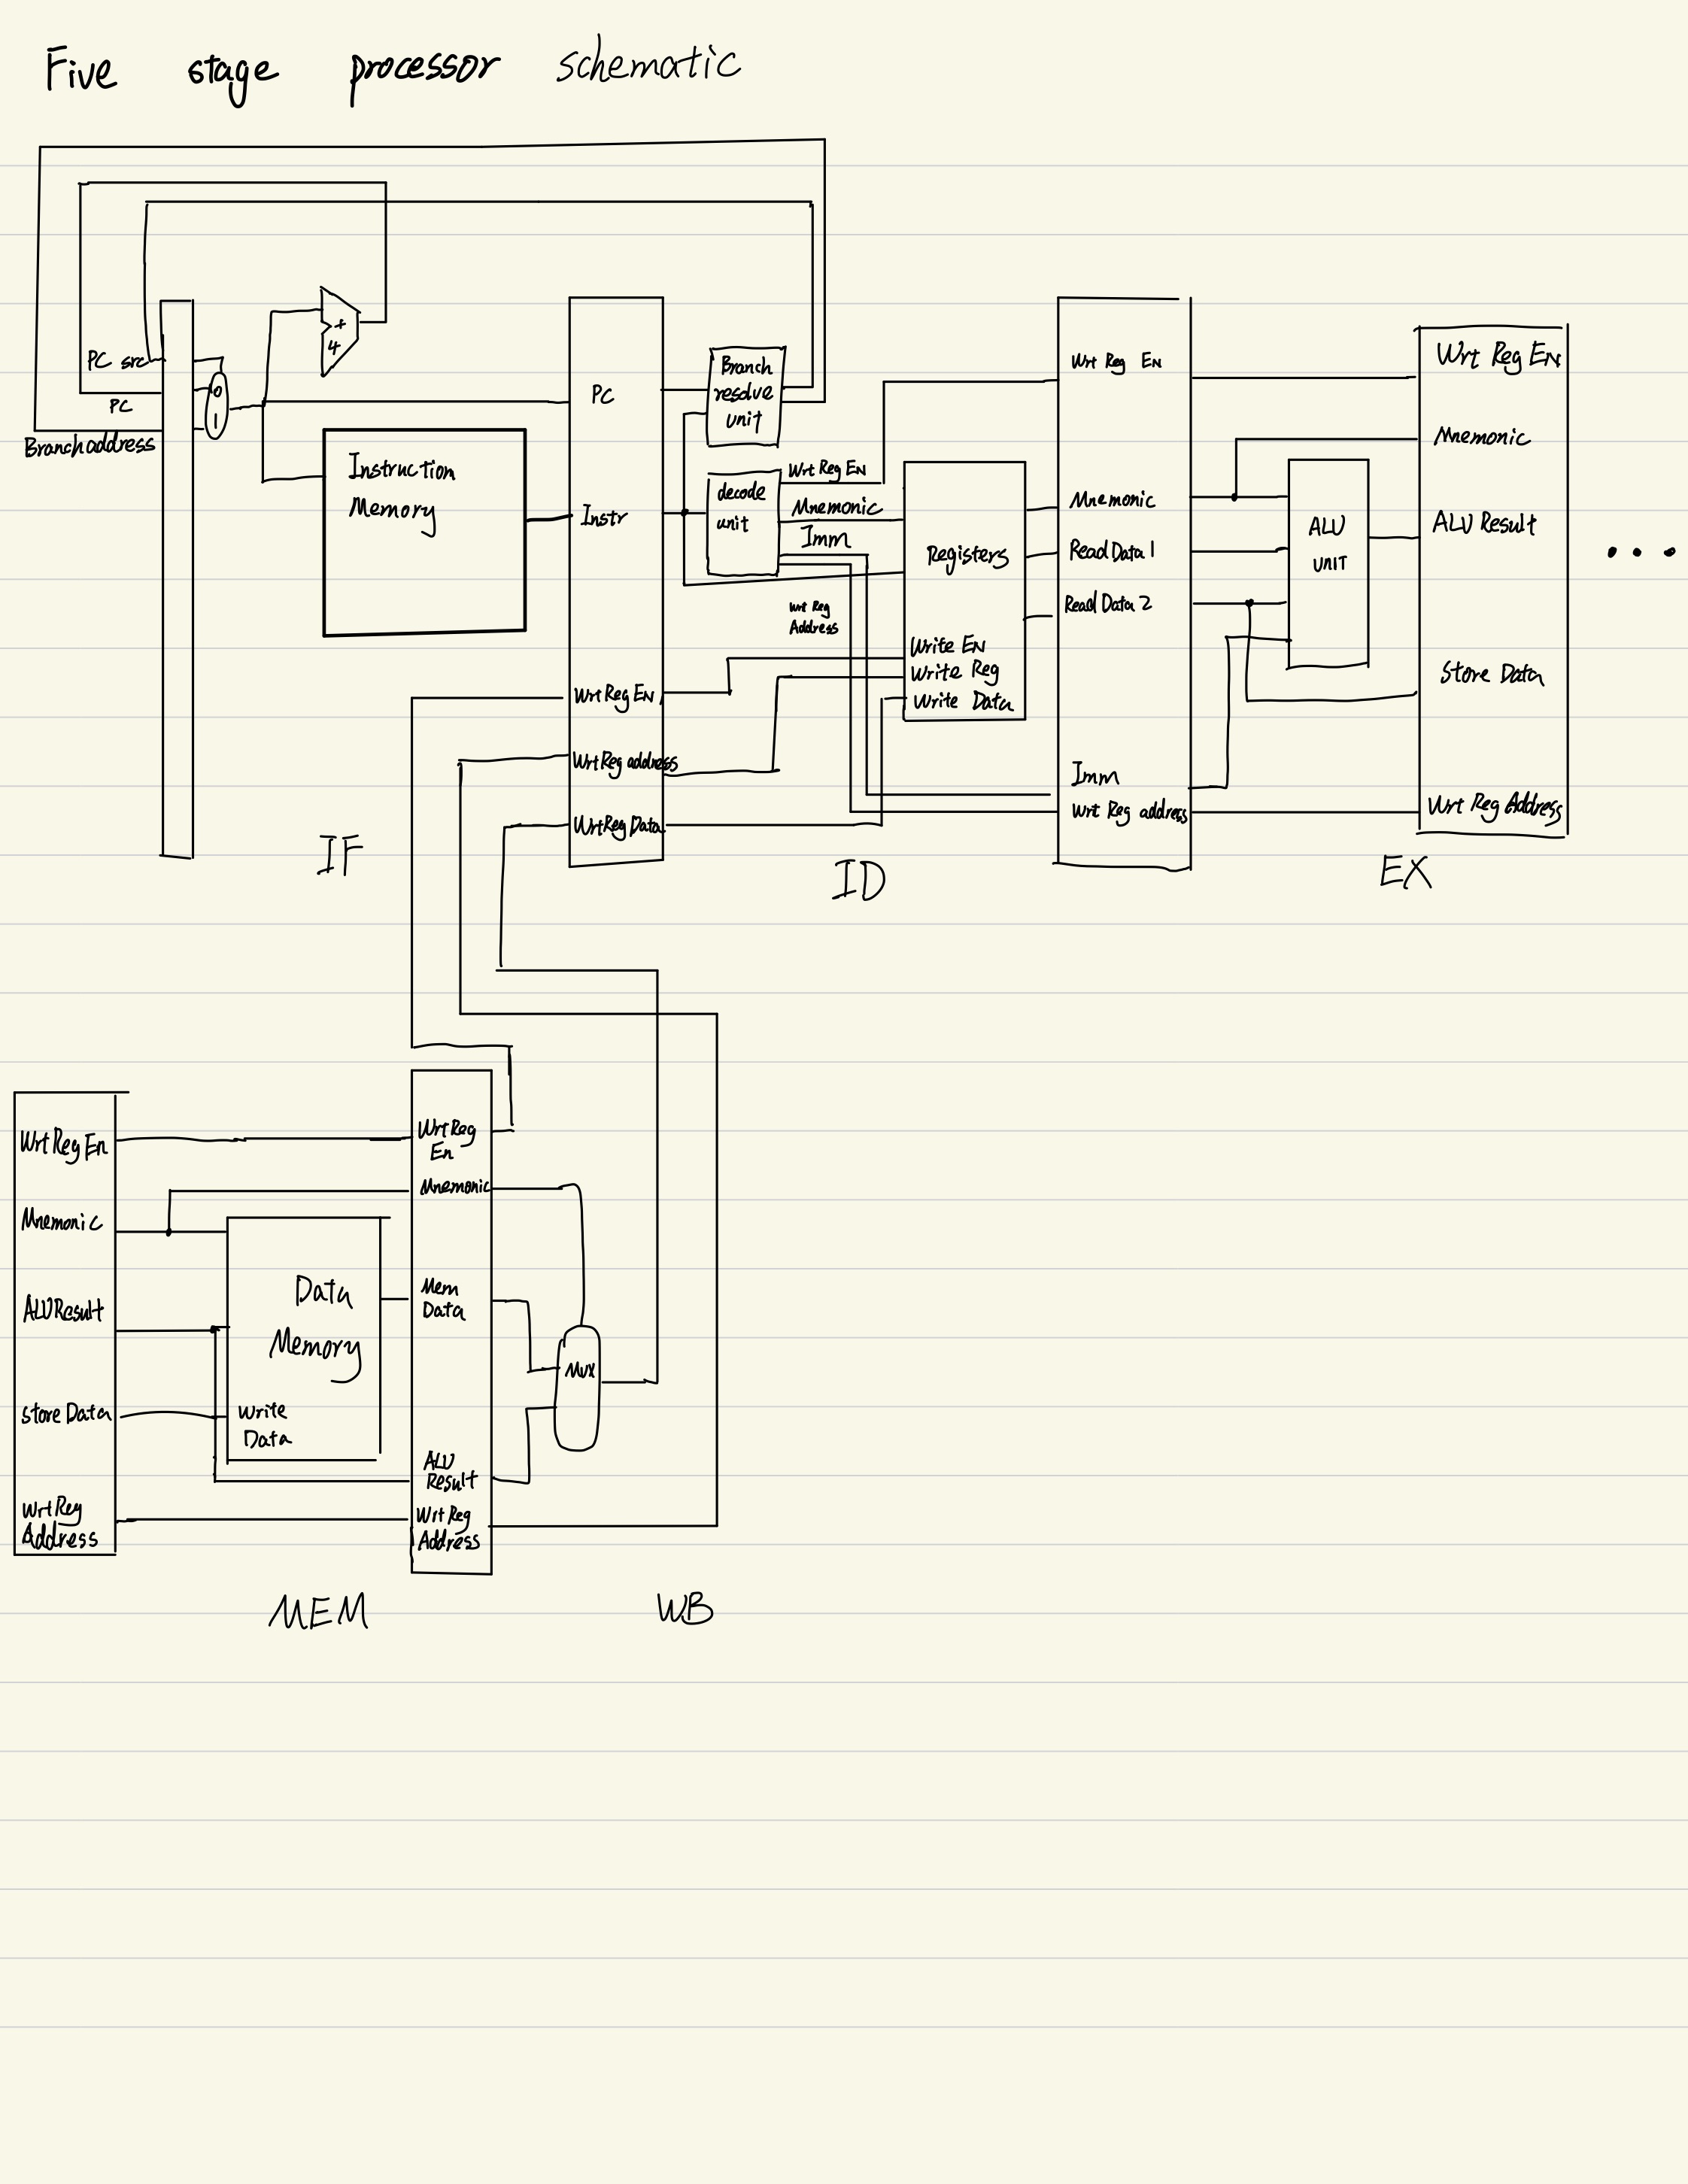 Five stage processor schematic
PC src
PC
Branch address
0
1
+
4
Instruction
Memory
IF
PC
Instr
Wrt Reg EN
Wrt Reg address
Wrt Reg Data
Branch
resolve
unit
decode
unit
Wrt Reg EN
Mnemonic
Imm
Wrt Reg
Address
Registers
Write EN
Write Reg
Write Data
ID
Wrt Reg EN
Mnemonic
Read Data 1
Read Data 2
Imm
Wrt Reg address
ALU
UNIT
EX
Wrt Reg EN
Mnemonic
ALU Result
Store Data
Wrt Reg Address
...
Wrt Reg En
Mnemonic
ALU Result
Store Data
Wrt Reg
Address
Data
Memory
Write
Data
MEM
Wrt Reg
En
Mnemonic
Mem
Data
ALU
Result
Wrt Reg
Address
Mux
WB